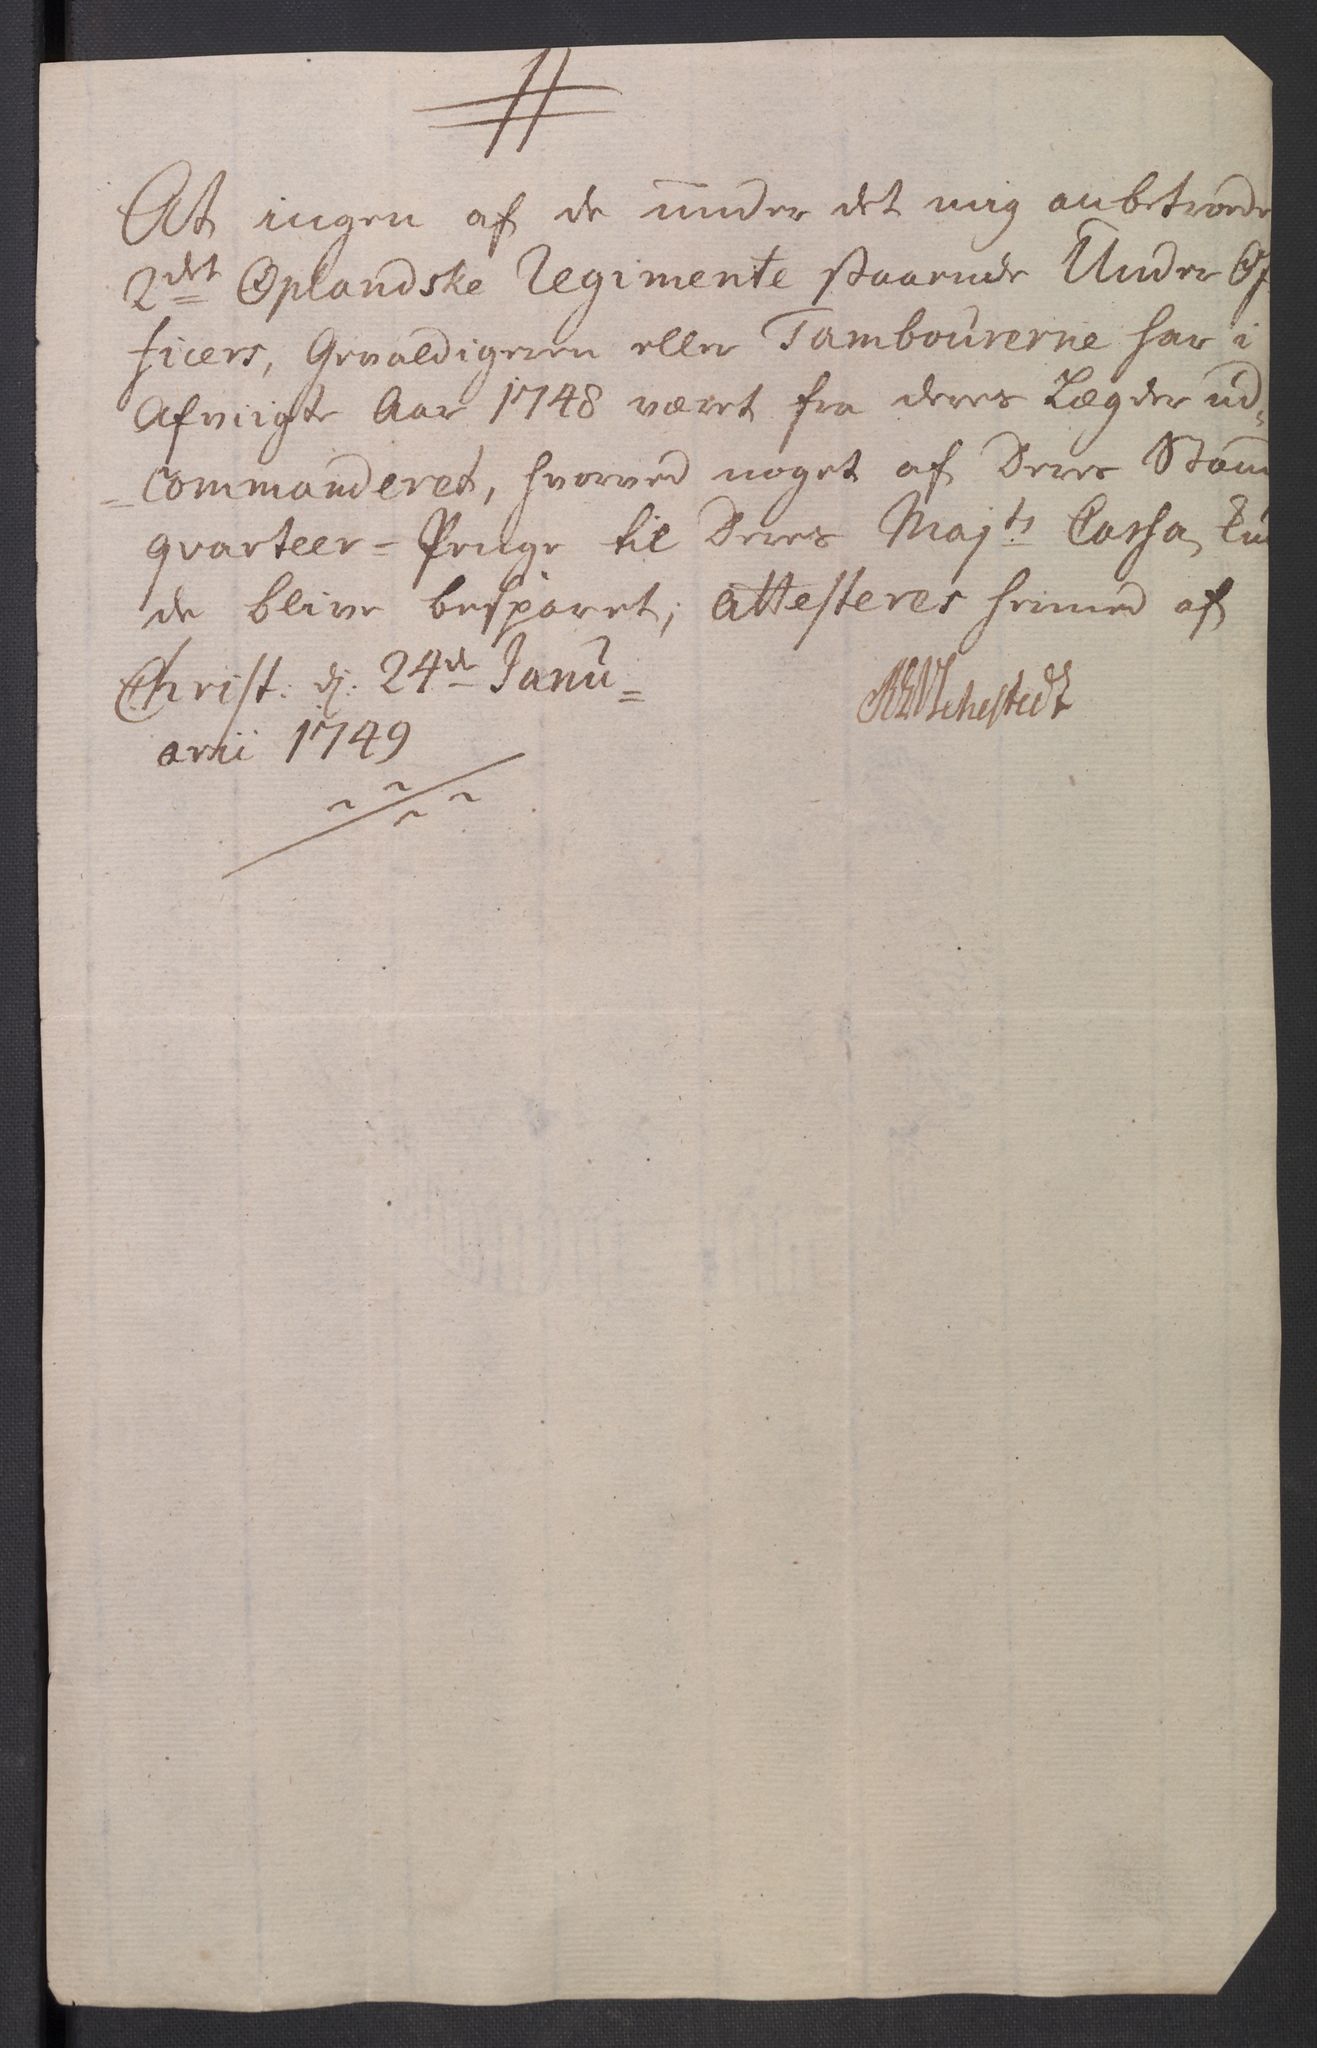 At ingen af de under det mig anbetroede
2det Oplandske Regimente staaende Under Of
ficers, Gevaldigeren eller Tambourerne har i
Afviigte Aar 1748 været fra deres Lægder ud=
=commanderet, hvorved noget af Deres Stand
qvarteer=Penge til Deres Majts Cassa kun
de blive besparet, attesteres hermed af
Christ. dj. 24de Janu=
arii 1749